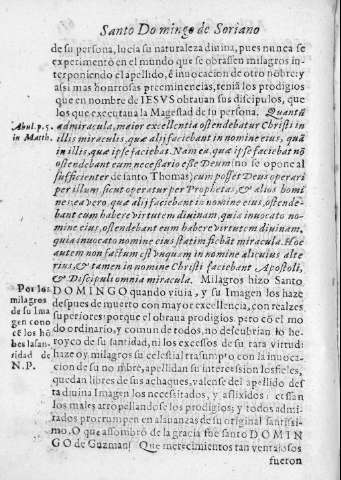 Santo Domingo de Soriano
de su persona, lucia su naturaleza diuina, pues nunca se
experimentò en el mundo que se obrassen milagros in-
terponiendo el apellido, è inuocacion de otro nobre; y
assi mas honrrosas preeminencias, tenià los prodigios
que en nombre de IESVS obrauan sus discipulos, que
los que executaua la Magestad de su persona. Quantũ
Abul.p.5.
in Matth.
ad miracula, maior excellentia ostendebatur Christi in
illis miraculis, quæ alij faciebat in nomine eius, quã
in illis, quæ ipse faciebat. Nam ea quæ ipse faciebat nõ
ostendebant eum necessario esse Deum (no se opone al
sufficienter de santo Thomas) cum posset Deus operari
per illum, sicut operatur per Prophetas, & alios homi
nes; ea vero, quæ alij faciebant in nomine eius, ostende-
bant eum habere virtutem diuinam, quia inuocato no-
mine eius, ostendebant eum habere virtutem diuinam,
quia inuocato nomine eius statim fiebãt miracula. Hoc
autem non factum est vnquam in nomine alicuius alte
rius, & tamen in nomine Christi faciebant Apostoli,
& Discipuli omnia miracula. Milagros hizo Santo
Por los
milagros
de su Ima
gen cono
cè los hõ
bes la san-
tidad de
N.P.
DOMINGO quando viuia, y su Imagen los haze
despues de muerto con mayor excelencia, con realzes
superiores: porque el obraua prodigios, pero cõ el mo
do ordinario, y comun de todos, no descubrian lo he-
royco de su santidad, ni los excessos de su rara virtud:
haze oy milagros su celestial trasumpto con la inuoca-
cion de su nombre, apellidan su intercession los fieles,
quedan libres de sus achaques, valense del apellido des
ta diuina Imagen los necessitados, y afligidos: cessan
los males atropellandose los prodigios; y todos admi-
rados prorrumpen en alauanzas de su original santissi-
mo. O que assombro de la gracia fue santo DOMIN
GO de Guzman! Que merecimientos tan ventajosos
fueron